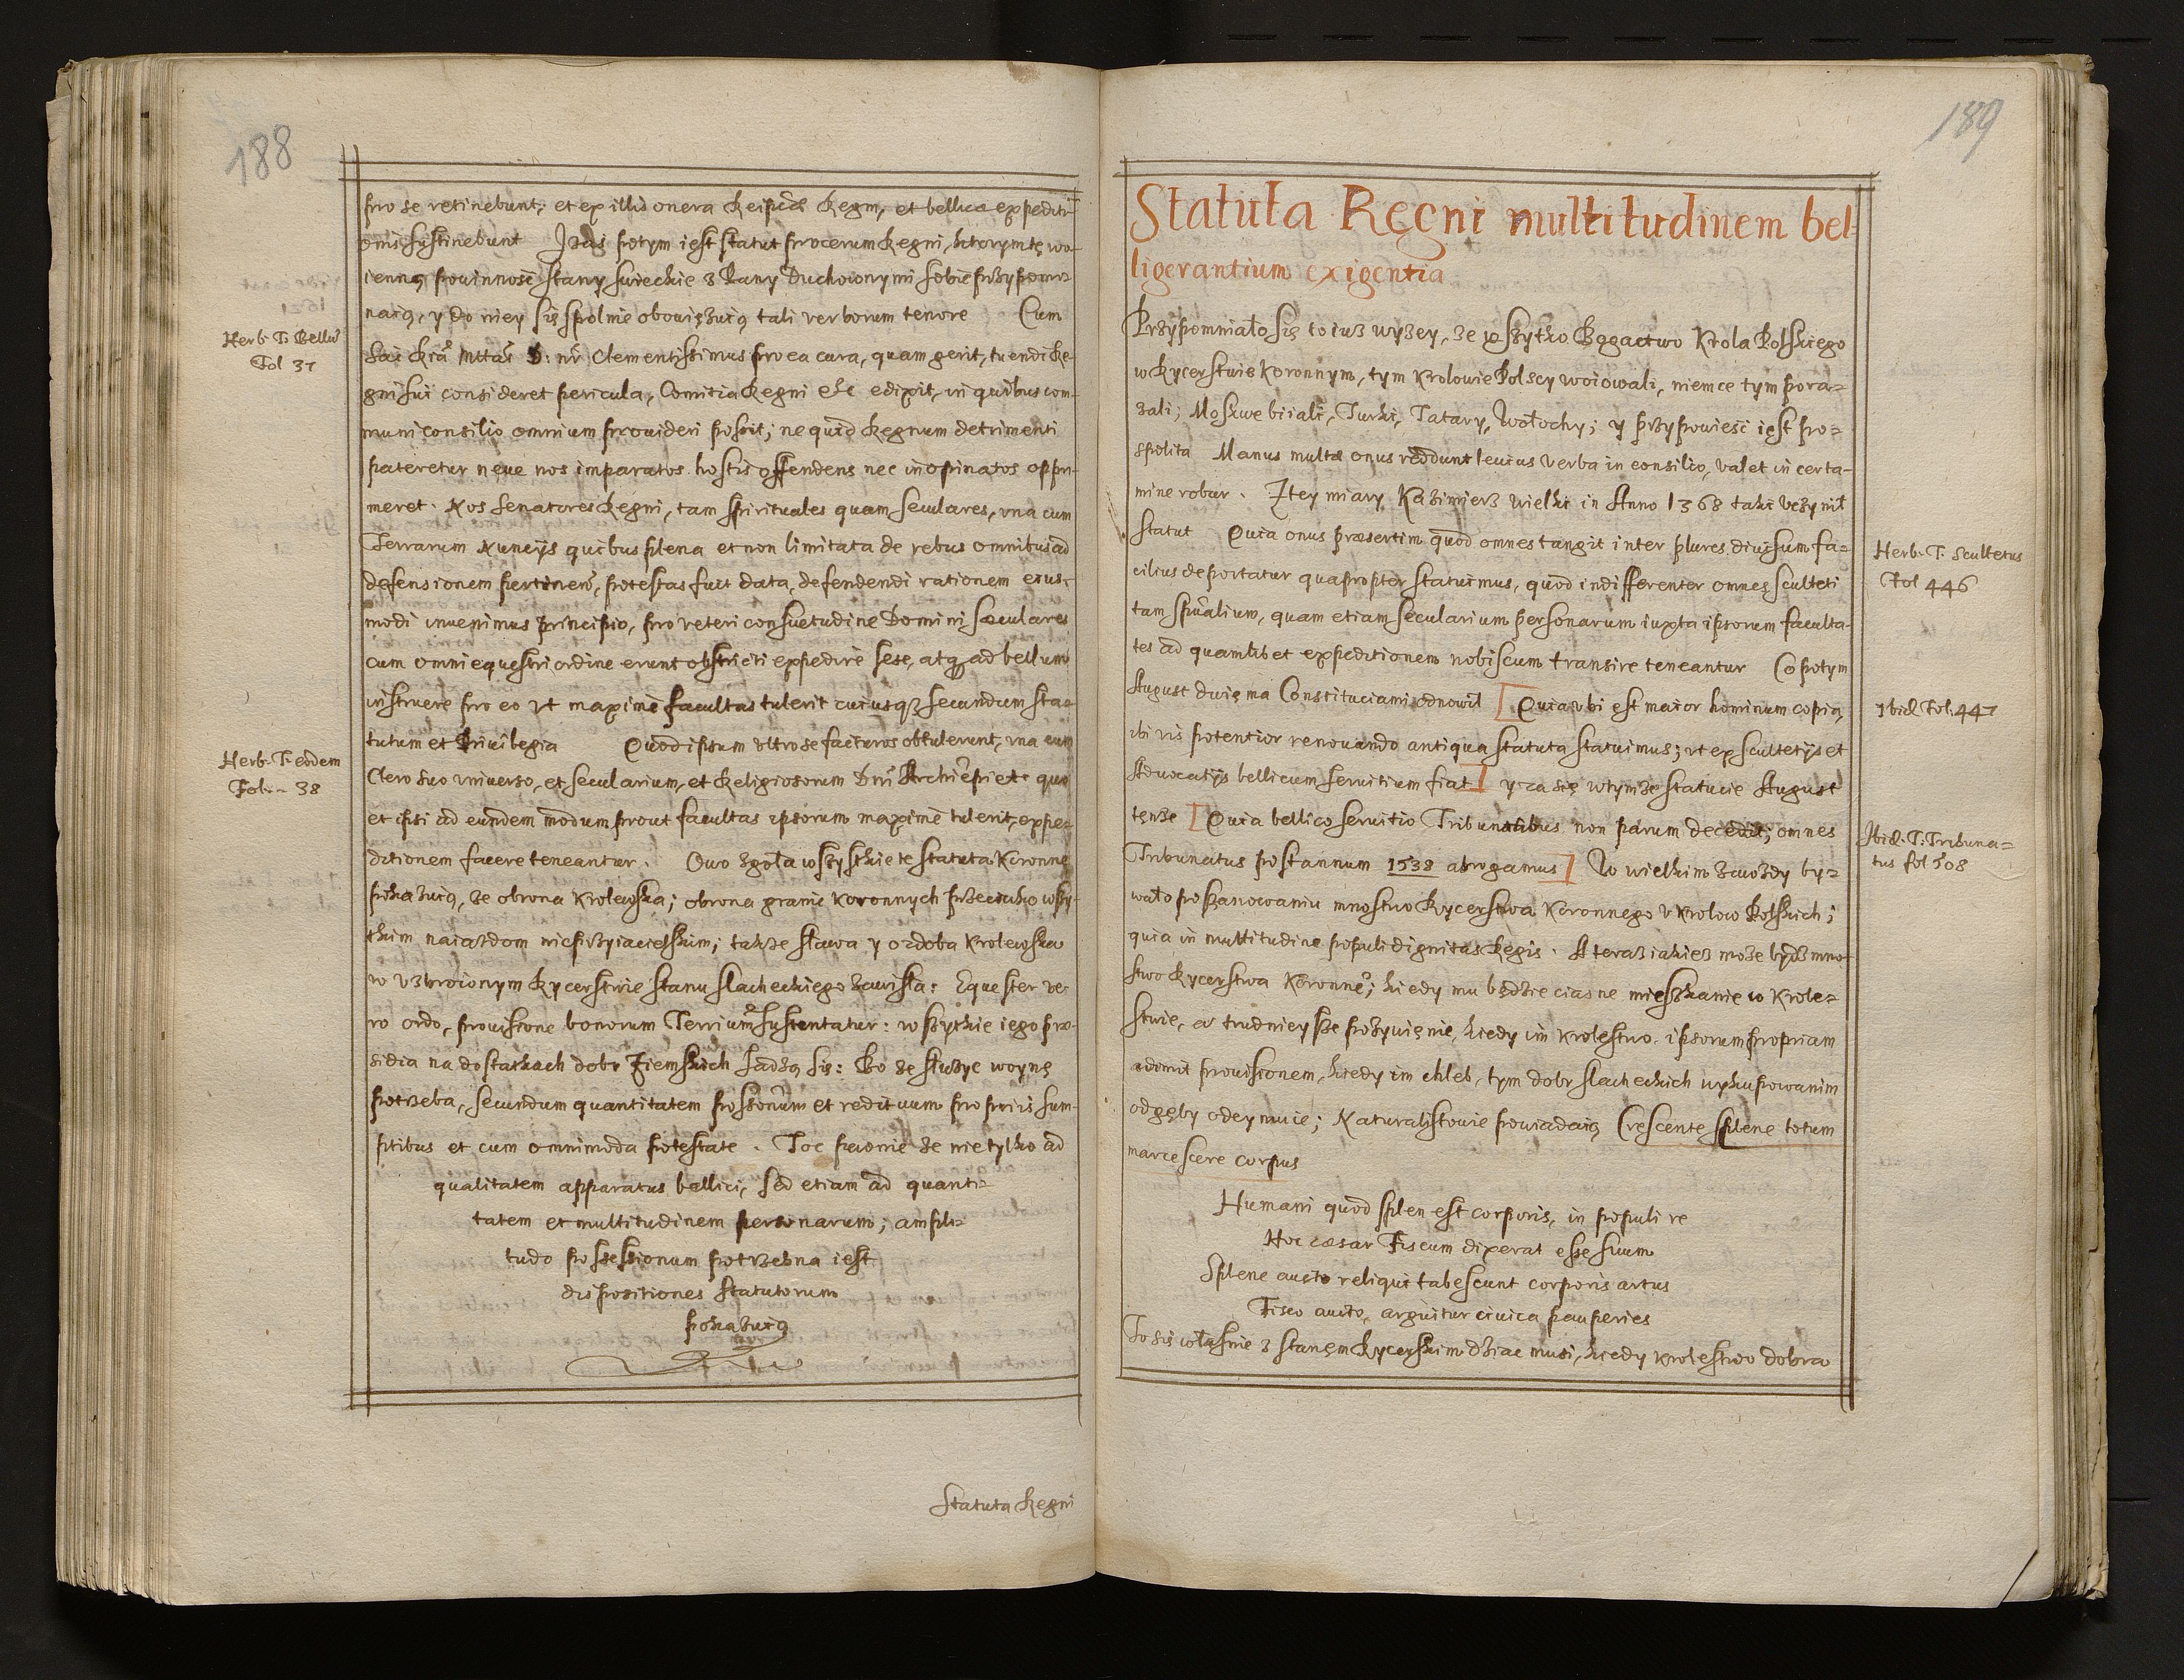 188
pro se retinebunt, et ex illis onera Reipcae Regni, et bellicae expediti-
onis sustinebunt Jnaś potym iest statut procerum Regni, ktorym tę wo-
ienną powinność stany swieckie z Pany Duchownymi sobie przypomi-
naią, y do niey się spolnie obowięzuią tali verborum tenore Cum
Herb. T. Bellū
Fol 37
Sac Ria Mttas D: nr̄ Clementissimus pro ea cura, quam gerit, tuendi Re-
gni sui consideret pericula, Comitia Regni etc edixit, in quibus com-
muni consilio omnium provideri possit; ne quid Regnum detrimenti
pateretur neue nos imparatos hostis offendens nec inopinatos oppri-
meret. Nos Senatores Regni, tam spirituales quam seculares, vna cum
Terrarum Nuncijs quibus plena et non limitata de rebus omnibus ad
defensionem pertinen, potestas fuit data, defendendi rationem eius-
modi invenimus principio, pro veteri consuetudine Domini saeculares
cum omni equestri ordine erunt obstricti expedire sese, atq ad bellum
instruere pro eo vt maxime facultas tulerit cuiusq secundum sta-
tutum et Privilegia Quod ipsum vltro se facturos obtulerunt, vna cum
Herb. T. eodem
Fol. 38
Clero suo vniuerso, et secularium, et Religiosorum Dni Archiepi etc quo
et ipsi ad eundem modum prout facultas ipsorum maxime tulerit, expe-
ditionem facere teneantur. Owo zgoła wszystkie te statuta Koronne
pokazuią, że obrona Krolewska; obrona granic Koronnych przeciwko wszy-
tkim naiazdom nieprzyiacielskim; także sława y ozdoba Krolewska
w vzbroionym Rycerstwie stanu slacheckiego zawisła: Equester ve-
ro ordo, provisione bonorum Terrium sustentatur: wszytkie iego prae-
sidia na dostatkach dobr Ziemskich sadzą się: Bo że służyc woynę
potrzeba, secundum quantitatem possionum et redituum proprijs sum-
ptibus et cum omnimoda potestate. Toc pewnie że nie tylko ad
qualitatem apparatus bellici, sed etiam ad quanti-
tatem et multitudinem personarum; ampli-
tudo possessionum potrzebna iest
dispositiones Statutorum
pokazuią
Statuta Regni
189
Statuta Regni multitudinem bel-
ligerantium exigentia
Przypomniało się to iuż wyzey, że wszytko Bogactwo Krola Polskiego
w Rycerstwie Koronnym, tym Krolowie Polscy woiowali, niemce tym pora-
zali; Moskwe biiali, Turki, Tatary, Wołochy; y przypowieść iest po-
spolita Manus multae onus reddunt levius verba in consilio, valet in certa-
mine robur. Z tey miary Kazimierz wielki in Anno 1368 taki vczynił
statut Quia onus praesertim quod omnes tangit inter plures divisum fa-
Herb. T. Scultetus
Fol 446
cilius deportatur quapropter statuimus, quod indifferenter omnes sculteti
tam spualium, quam etiam secularium personarum iuxta ipsorum faculta-
tes ad quamlibet expeditionem nobiscum transire teneantur Co potym
August dwięma Constituciami odnowił [Quia vbi est maior hominum copia,
Ibid Fol. 447
ibi vis potentior renouando antiqua statuta statuimus; vt ex scultetijs et
Advocatijs bellicum seruitium fiat] y zasię w tymże statucie August
tenże [Quia bellico seruitio Tribunatibus non parum decedit; omnes
Ibid. T. Tribuna-
tus fol 508
Tribunatus post annum 1538 abrogamus] W wielkim zawzdy by-
wało poszanowaniu mnostwo Rycerstwa Koronnego v Krolow Polskich;
quia in multitudine populi dignitas Regis. A teraz iakiesz może bydz mno-
stwo Rycerstwa Koronne; kiedy mu będzie ciasne mieszkanie w Krole-
stwie, a trudnieysze pożywięnie, kiedy im Krolestwo ipsorum propriam
adimit provisionem, kiedy im chleb, tym dobr slacheckich wykupowanim
odgęby odeymuie; Naturalistowie powiadaią Crescente splene totum
marcescere corpus
Humani quod splen est corporis, in populi re
Hoc caesar Fiscum dixerat esse suum
Splene aucto reliqui tabescunt corporis artus
Fisco aucto, arguitur ciuica pauperies
To się własnie z stanęm Rycerskim dziac musi, kiedy Krolestwo dobra